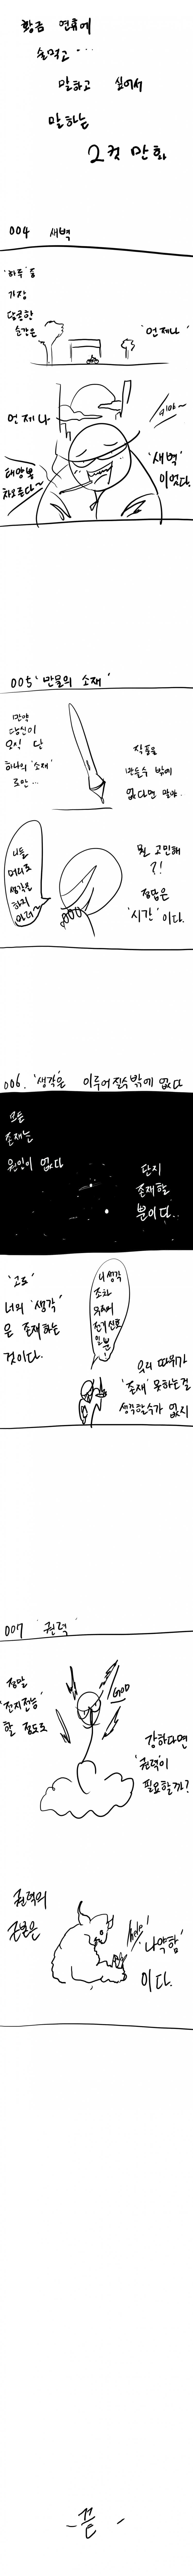 황금 연휴에
술먹고...
말하고 싶어서
말하는
2컷 만화
004 새벽
'하루' 중
가장
달콤한
순간은
'언제나'
언제나
'새벽'
이었다.
태양북
차오른다~
005 '만물의 소재'
만약
당신이
오직 단
하나의 '소재'
로만...
작품을
만들수 밖에
없다면 말야..
니들
머리로
생각을
하지
마라~
뭔 고민해
?!
정답은
'시간' 이다.
006. '생각'은 이루어질수밖에 없다
모든
존재는
원인이 없다
단지
존재할
뿐이다..
'고로'
너의 '생각'
은 존재하는
것이다.
니 생각
조차
뇌의
전기신호
일 뿐!
우리 따위가
'존재' 못하는걸
생각할수가 없지
007 '권력'
정말
'전지전능'
할 정도로
GOD
강하다면
'권력'이
필요할까?
권력의
근본은
help!
'나약함'
이다.
- 끝 -